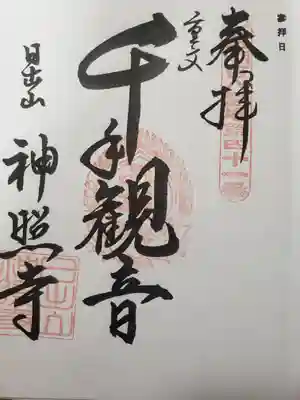 参拝日
奉拝
重文
千手観音
日出山
神照寺